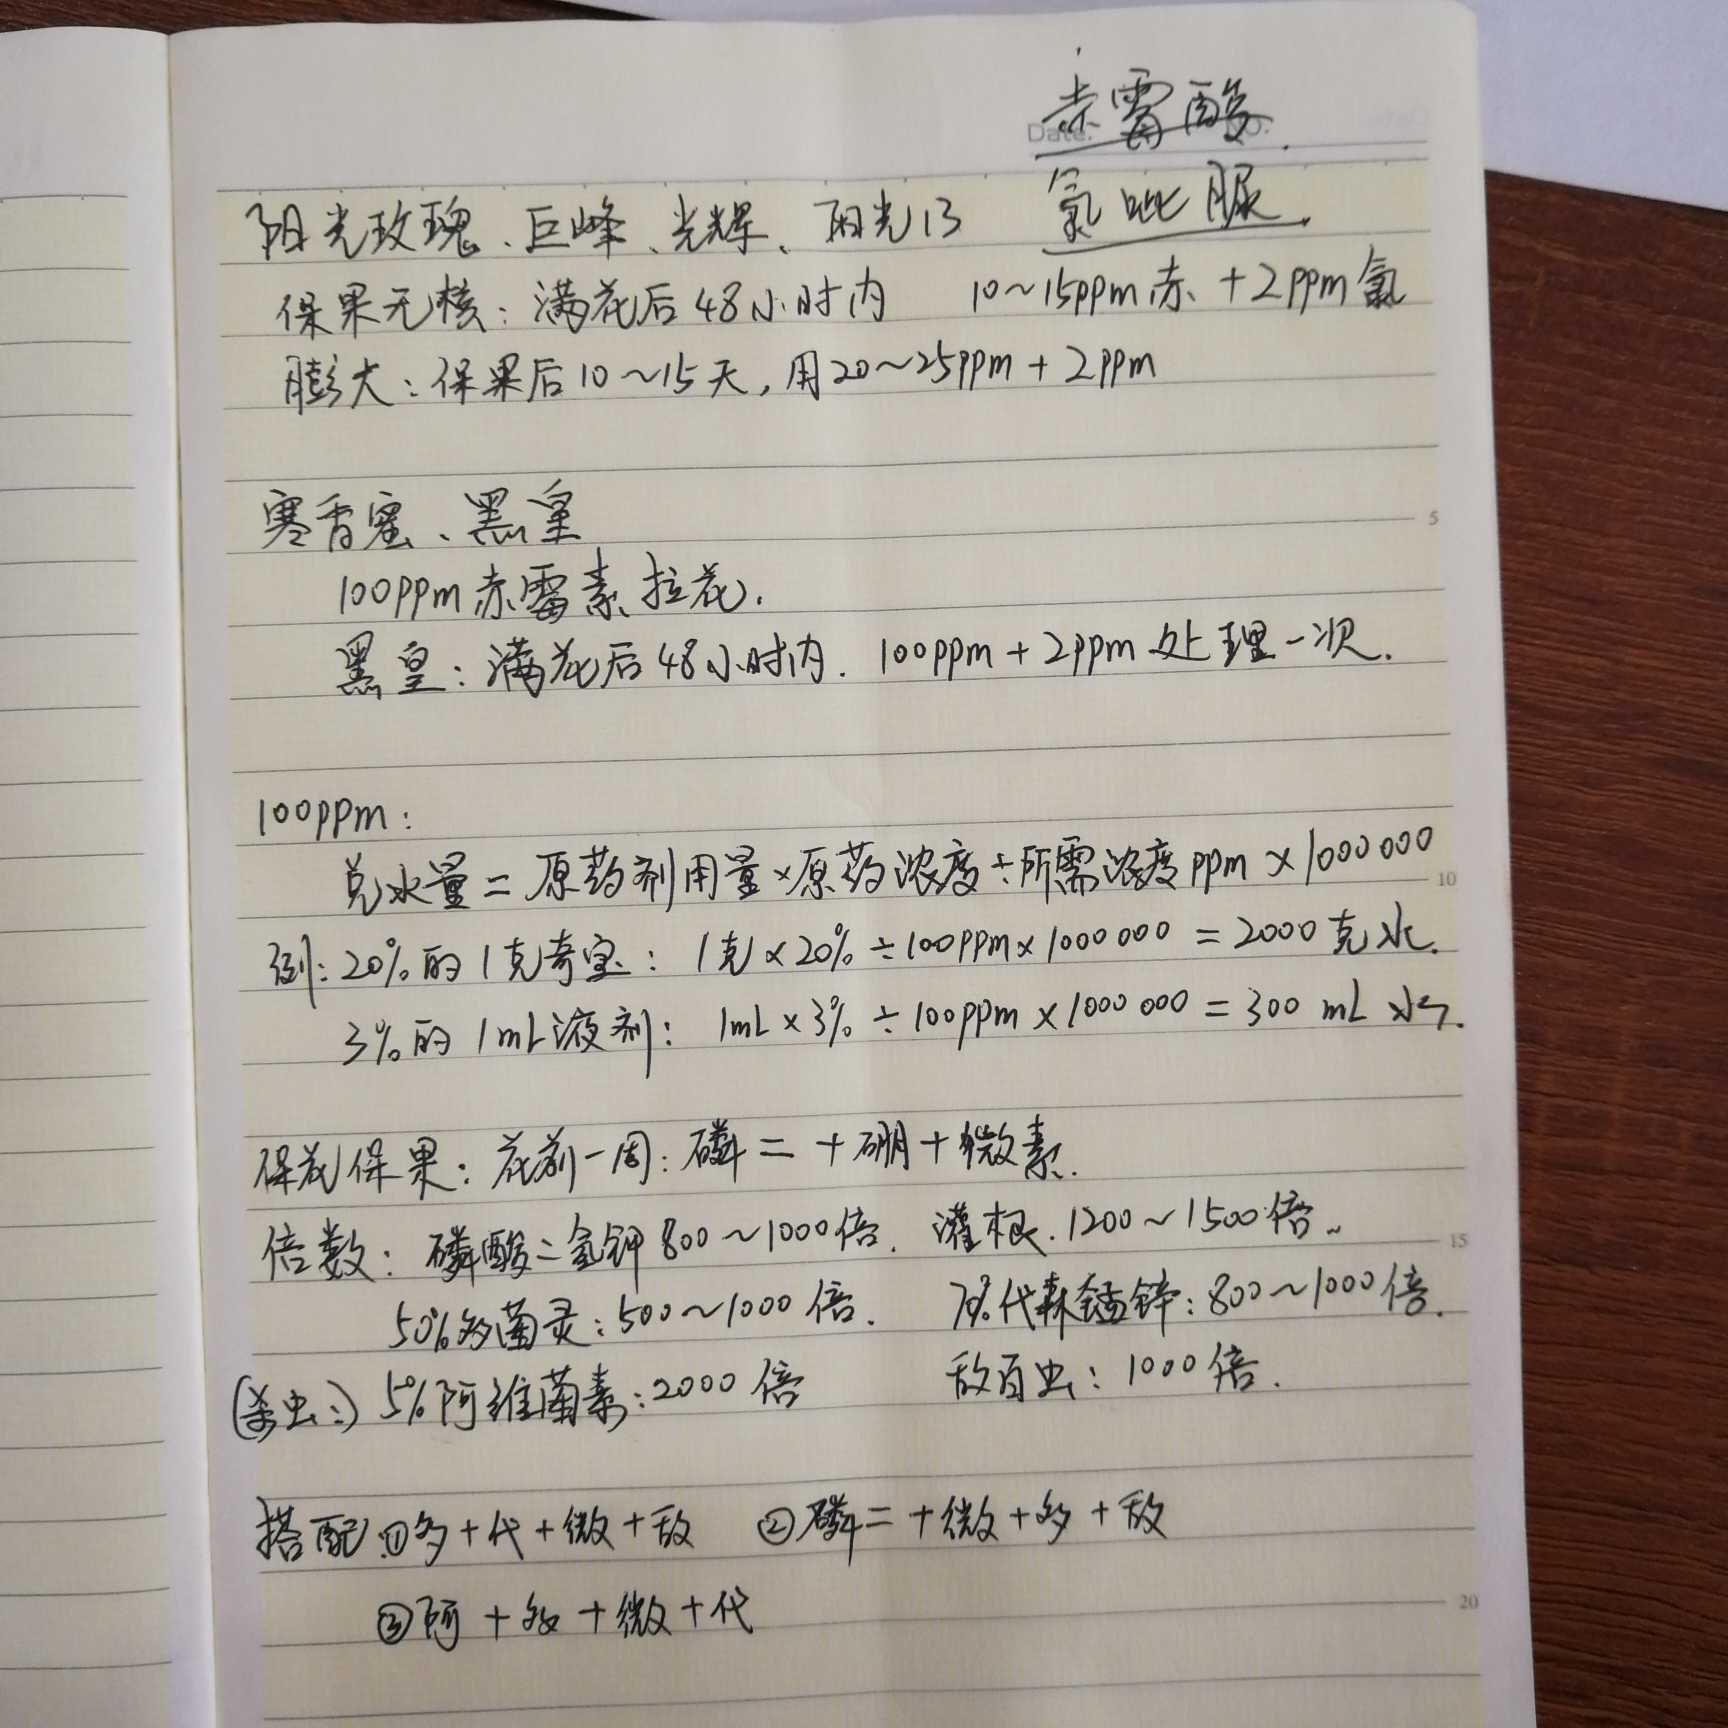 赤霉酸.
Date. No.
阳光玫瑰、巨峰、光辉、阳光13 氯吡脲.
保果无核：满花后48小时内 10~15ppm赤+2ppm氯
膨大：保果后10~15天，用20~25ppm+2ppm
寒香蜜、黑皇
5
100ppm赤霉素拉花.
黑皇：满花后48小时内. 100ppm+2ppm处理一次.
100ppm：
兑水量=原药剂用量×原药浓度÷所需浓度ppm×1000000
10
例：20%的1克奇宝：1克×20%÷100ppm×1000000=2000克水.
3%的1mL液剂：1mL×3%÷100ppm×1000000=300mL水.
保花保果：花前一周：磷二+硼+微素.
倍数：磷酸二氢钾800~1000倍. 灌根.1200~1500倍.
15
50%多菌灵：500~1000倍. 代森锰锌：800~1000倍.
(杀虫：) 5%阿维菌素：2000倍 敌百虫：1000倍.
搭配①多+代+微+敌 ②磷二+微+多+敌
③阿+多+微+代
20